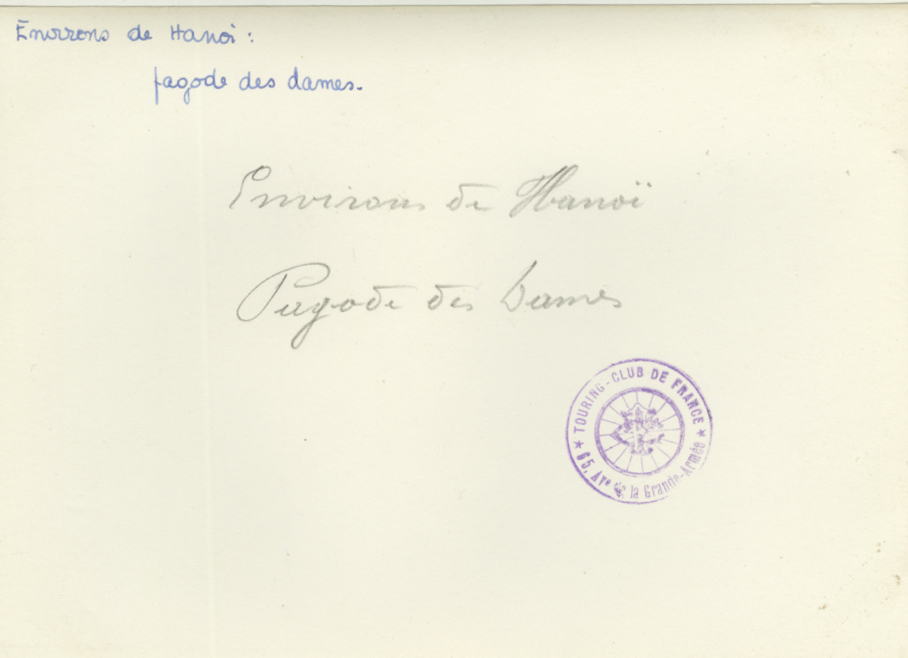 Environs de Hanoï :
pagode des dames.
Environs de Hanoï
Pagode des Dames
★ TOURING-CLUB DE FRANCE ★
65, Avᵉ de la Grande-Armée